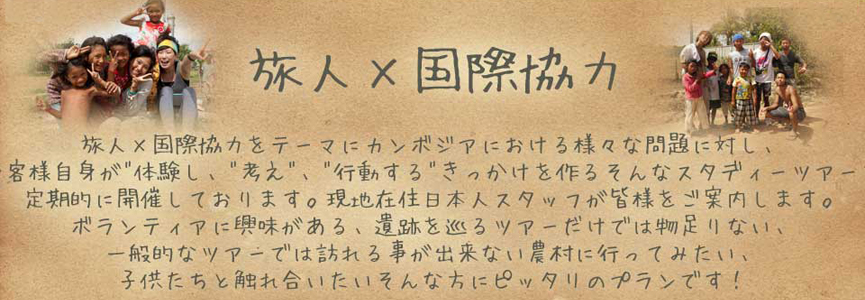 旅人×国際協力
旅人×国際協力をテーマにカンボジアにおける様々な問題に対し、
客様自身が"体験し、"考え"、"行動する"きっかけを作るそんなスタディーツアー
定期的に開催しております。現地在住日本人スタッフが皆様をご案内します。
ボランティアに興味がある、遺跡を巡るツアーだけでは物足りない、
一般的なツアーでは訪れる事が出来ない農村に行ってみたい、
子供たちと触れ合いたいそんな方にピッタリのプランです！